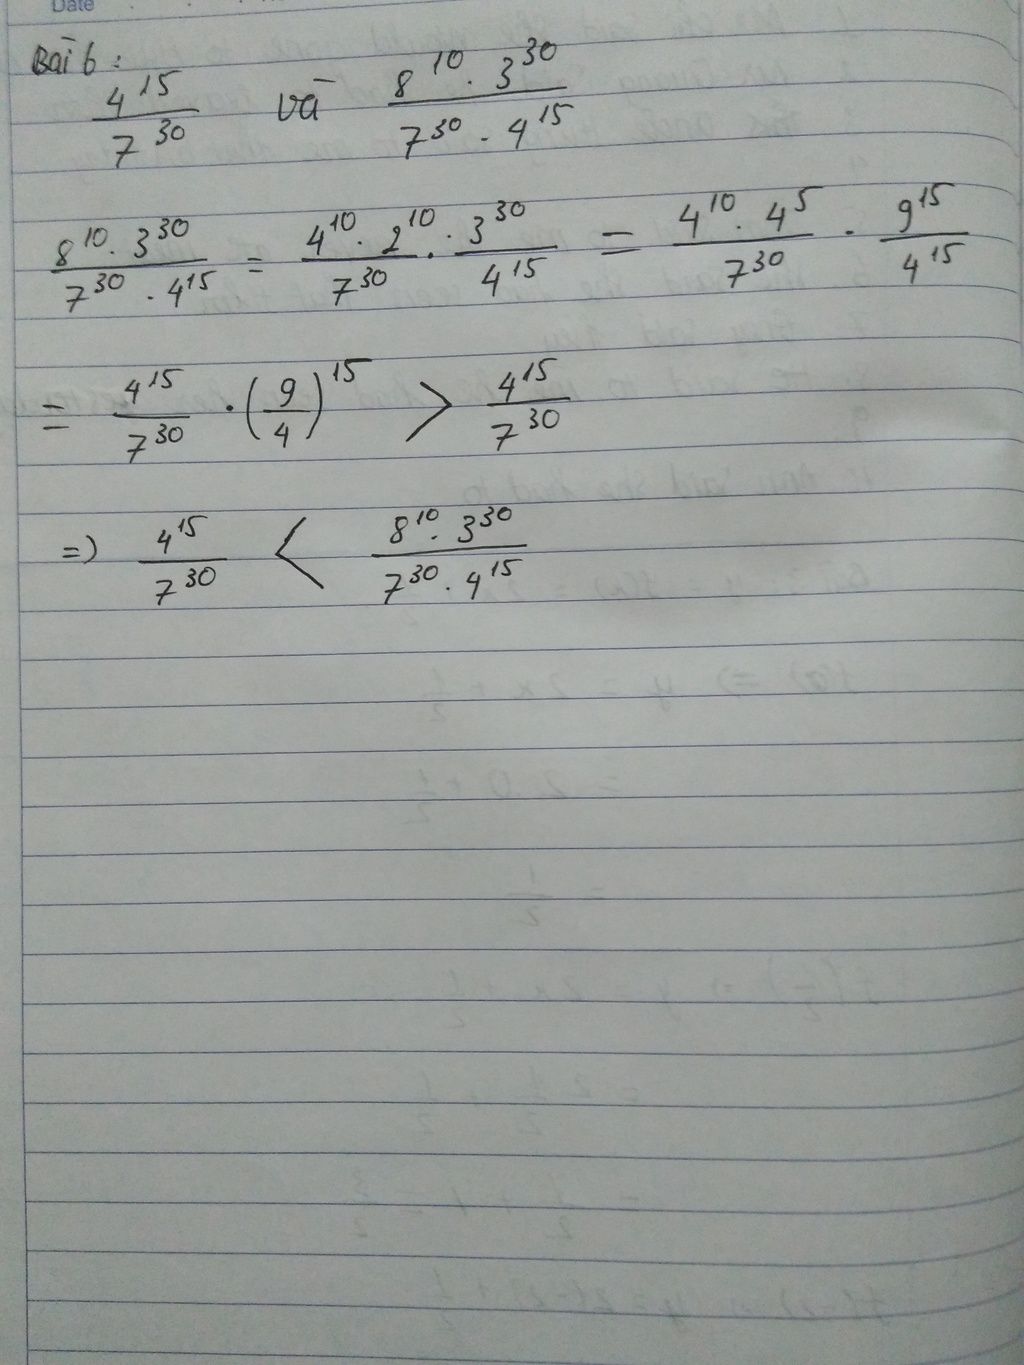 Date
Bài 6:
4^15/7^30 và (8^10 . 3^30)/(7^30 . 4^15)
(8^10 . 3^30)/(7^30 . 4^15) = (4^10 . 2^10)/7^30 . 3^30/4^15 = (4^10 . 4^5)/7^30 . 9^15/4^15
= 4^15/7^30 . (9/4)^15 > 4^15/7^30
=) 4^15/7^30 < (8^10 . 3^30)/(7^30 . 4^15)